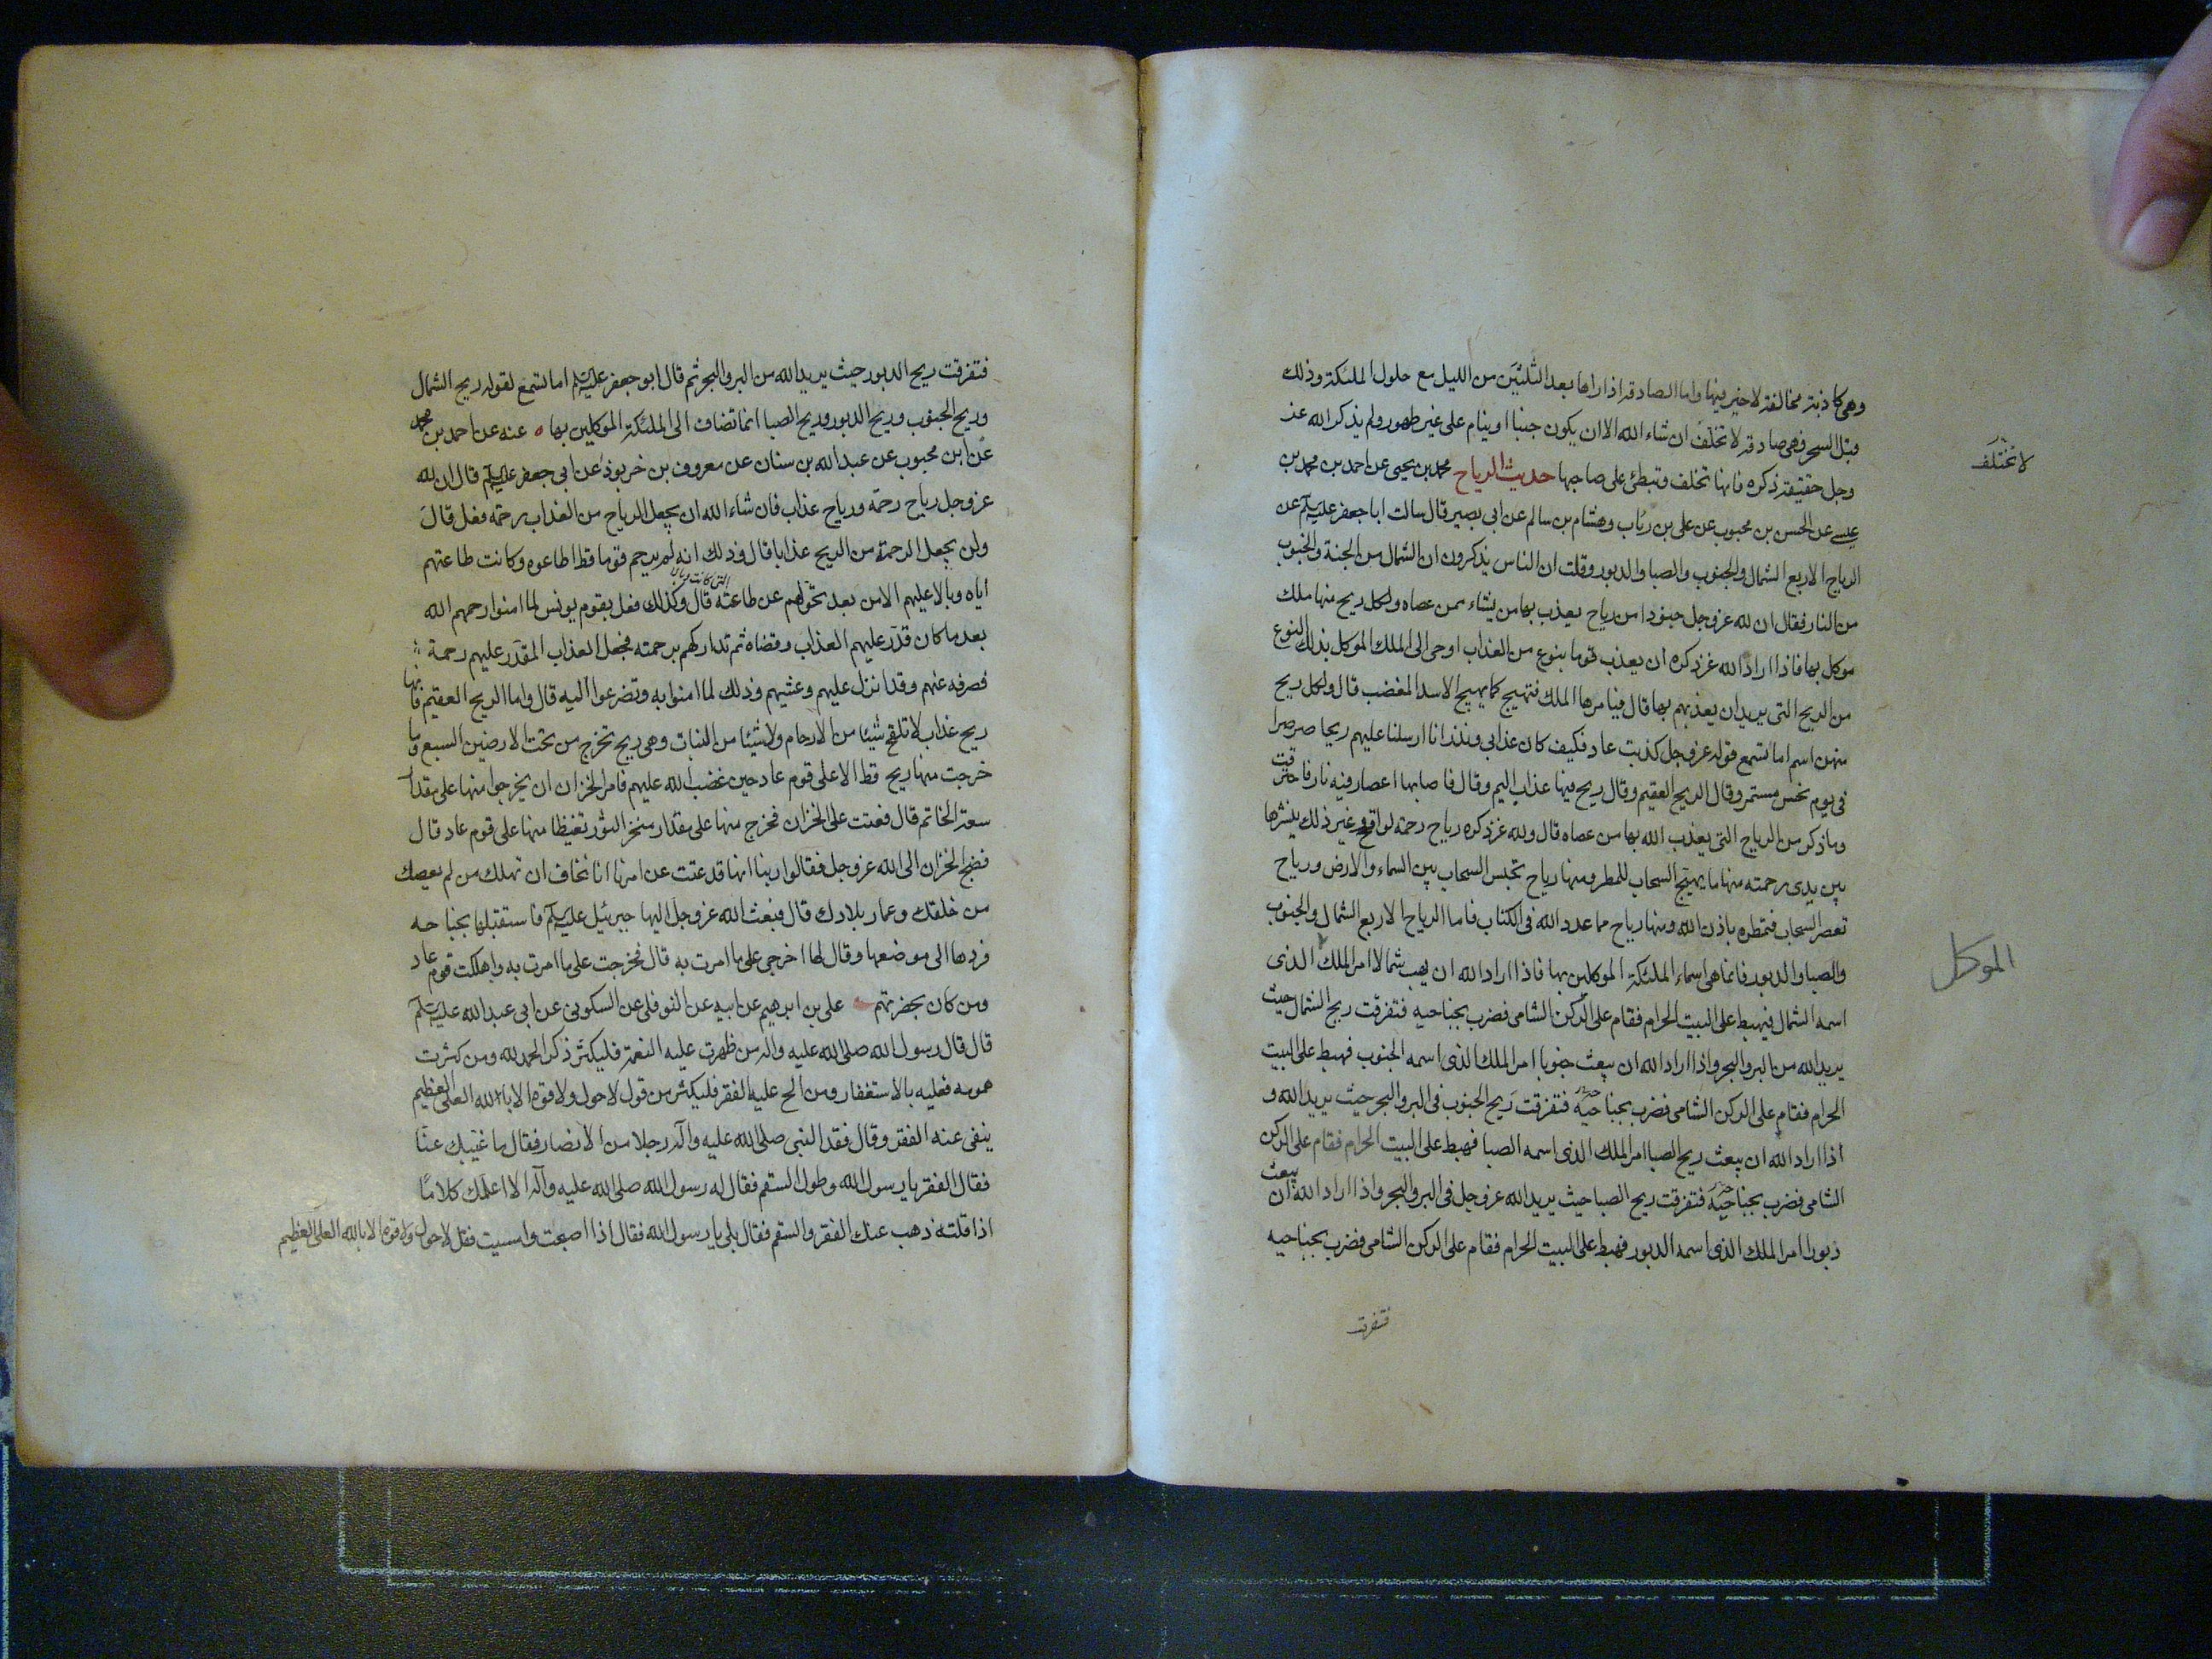 وهى كاذبة مخالفة لا خير فيها واما الصادقة اذا راها بعد الثلثين من الليل مع حلول الملئكة وذلك
قبل السحر فهى صادقة لا تخلف ان شاء الله الا ان يكون جنبا او ينام على غير طهور ولم يذكر الله عز
لا تختلف
وجل حقيقة ذكره فانها تخلف وتبطئ على صاحبها حديث الرياح محمد بن يحيى عن احمد بن محمد بن
عيسى عن الحسن بن محبوب عن على بن رئاب وهشام بن سالم عن ابى بصير قال سالت ابا جعفر عليه السلم عن
الرياح الاربع الشمال والجنوب والصبا والدبور وقلت ان الناس يذكرون ان الشمال من الجنة والجنوب
من النار فقال ان لله عز وجل جنودا من رياح يعذب بها من يشاء ممن عصاه ولكل ريح منها ملك
موكل بها فاذا اراد الله عز ذكره ان يعذب قوما بنوع من العذاب اوحى الى الملك الموكل بذلك النوع
من الريح التى يريد ان يعذبهم بها قال فيامرها الملك فتهيج كما يهيج الاسد المغضب قال ولكل ريح
منهن اسم اما تسمع قوله عز وجل كذبت عاد فكيف كان عذابى ونذر انا ارسلنا عليهم ريحا صرصرا
فى يوم نحس مستمر وقال الريح العقيم وقال ريح فيها عذاب اليم وقال فاصابها اعصار فيه نار فاحترقت
وما ذكر من الرياح التى يعذب الله بها من عصاه قال ولله عز ذكره رياح رحمة لواقح وغير ذلك ينشرها
بين يدى رحمته منها ما يهيج السحاب للمطر ومنها رياح تحبس السحاب بين السماء والارض ورياح
تعصر السحاب فتمطره باذن الله ومنها رياح مما عدد الله فى الكتاب فاما الرياح الاربع الشمال والجنوب
والصبا والدبور فانما هى اسماء الملئكة الموكلين بها فاذا اراد الله ان يهب شمالا امر الملك الذى
الموكل
اسمه الشمال فيهبط على البيت الحرام فقام على الركن الشامى فضرب بجناحيه فتفرقت ريح الشمال حيث
يريد الله من البر والبحر واذا اراد الله ان يبعث جنوبا امر الملك الذى اسمه الجنوب فهبط على البيت
الحرام فقام على الركن الشامى فضرب بجناحيه فتفرقت ريح الجنوب فى البر والبحر حيث يريد الله و
اذا اراد الله ان يبعث ريح الصبا امر الملك الذى اسمه الصبا فهبط على البيت الحرام فقام على الركن
الشامى فضرب بجناحيه فتفرقت ريح الصبا حيث يريد الله عز وجل فى البر والبحر واذا اراد الله ان يبعث
دبورا امر الملك الذى اسمه الدبور فهبط على البيت الحرام فقام على الركن الشامى فضرب بجناحيه
فتفرقت
فتفرقت ريح الدبور حيث يريد الله من البر والبحر ثم قال ابو جعفر عليه السلم اما تسمع لقوله ريح الشمال
وريح الجنوب وريح الدبور وريح الصبا انما تضاف الى الملئكة الموكلين بها ه عنه عن احمد بن محمد
عن ابن محبوب عن عبد الله بن سنان عن معروف بن خربوذ عن ابى جعفر عليه السلم قال ان لله
عز وجل رياح رحمة ورياح عذاب فان شاء الله ان يجعل الرياح من العذاب رحمة فعل قال
ولن يجعل الرحمة من الريح عذابا قال وذلك انه لم يرحم قوما قط اطاعوه وكانت طاعتهم
اياه وبالا عليهم الا من بعد تحولهم عن طاعته قال وكذلك فعل بقوم يونس لما امنوا رحمهم الله
بعد ما كان قدر عليهم العذاب وقضاه ثم تداركهم برحمته فجعل العذاب المقدر عليهم رحمة
فصرفه عنهم وقد انزل عليهم وغشيهم وذلك لما امنوا به وتضرعوا اليه قال واما الريح العقيم فانها
ريح عذاب لا تلقح شيئا من الارحام ولا شيئا من النبات وهى ريح تخرج من تحت الارضين السبع وما
خرجت منها ريح قط الا على قوم عاد حين غضب الله عليهم فامر الخزان ان يخرجوا منها على مقدار
سعة الخاتم قال فعتت على الخزان فخرج منها على مقدار منخر الثور تغيظا منها على قوم عاد قال
فضج الخزان الى الله عز وجل فقالوا ربنا انها قد عتت عن امرنا انا نخاف ان تهلك من لم يعصك
من خلقك وعمار بلادك قال فبعث الله عز وجل اليها جبرئيل عليه السلم فاستقبلها بجناحه
فردها الى موضعها وقال لها اخرجى على ما امرت به قال فخرجت على ما امرت به واهلكت قوم عاد
ومن كان بحضرتهم على بن ابرهيم عن ابيه عن النوفلى عن السكونى عن ابى عبد الله عليه السلم
قال قال رسول الله صلى الله عليه واله من ظهرت عليه النعمة فليكثر ذكر الحمد لله ومن كثرت
همومه فعليه بالاستغفار ومن الح عليه الفقر فليكثر من قول لا حول ولا قوة الا بالله العلى العظيم
ينفى عنه الفقر وقال فقد النبى صلى الله عليه وآله رجلا من الانصار فقال ما غيبك عنا
فقال الفقر يا رسول الله وطول السقم فقال له رسول الله صلى الله عليه وآله الا اعلمك كلاما
اذا قلته ذهب عنك الفقر والسقم فقال بلى يا رسول الله فقال اذا اصبحت وامسيت فقل لا حول ولا قوة الا بالله العلى العظيم